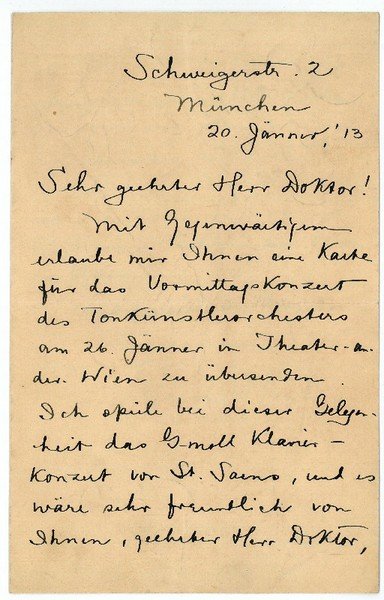 Schweigerstr. 2
München
20. Jänner, '13
Sehr geehrter Herr Doktor!
Mit Gegenwärtigem
erlaube mir Ihnen eine Karte
für das Vormittagskonzert
des Tonkünstlerorchesters
am 26. Jänner in Theater-an-
der-Wien zu übersenden.
Ich spiele bei dieser Gelegen-
heit das G-moll Klavier-
Konzert von St. Saens, und es
wäre sehr freundlich von
Ihnen, geehrter Herr Doktor,